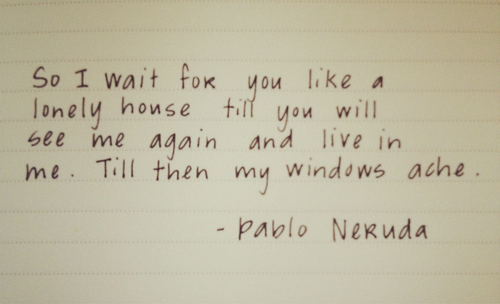 So I wait for you like a
lonely house till you will
see me again and live in
me. Till then my windows ache.
- Pablo Neruda